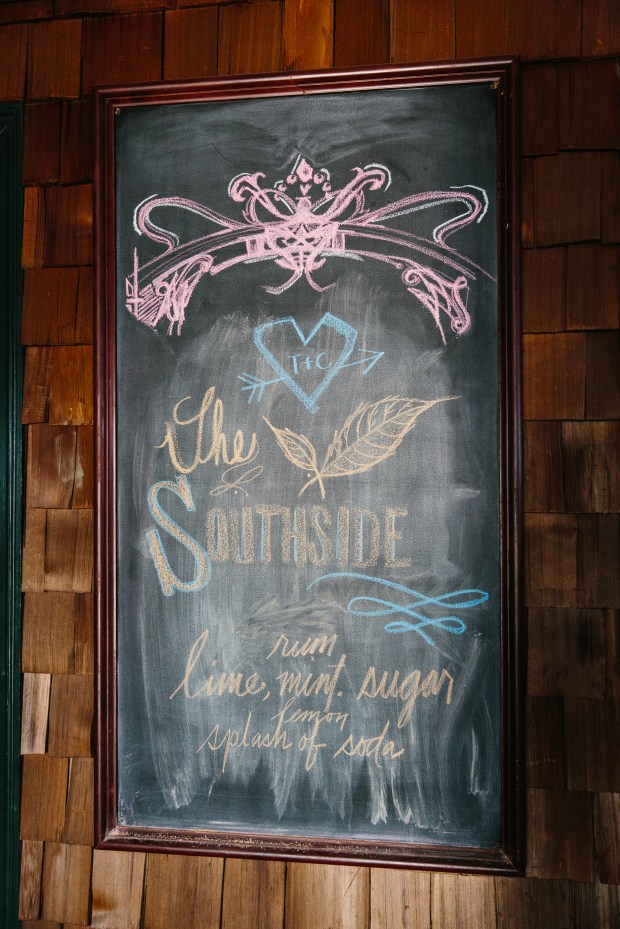 T+C
The
SOUTHSIDE
rum
lime, mint. sugar
lemon
splash of soda